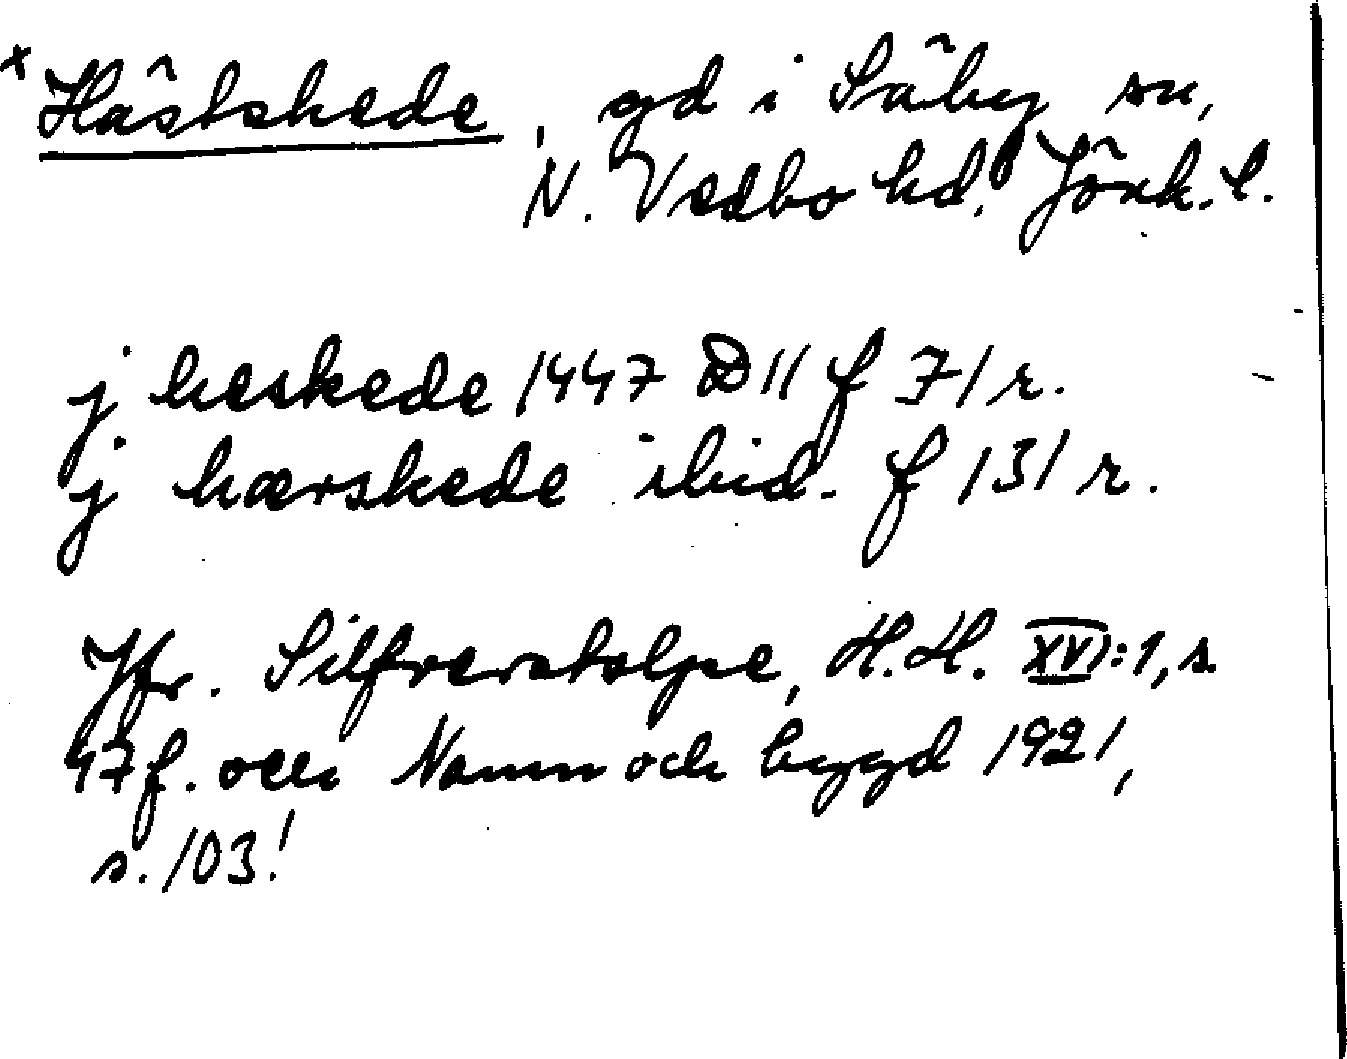 x Hästskede, gd i Säby sn,
N. Vedbo hd. Jönk. l.
j heskede 1447 D 11 f 71 r.
j hærskede ibid. f 131 r.
Jfr. Silfverstolpe, H.H. XVI:1, s.
47 f. och Namn och bygd 1921,
s. 103!